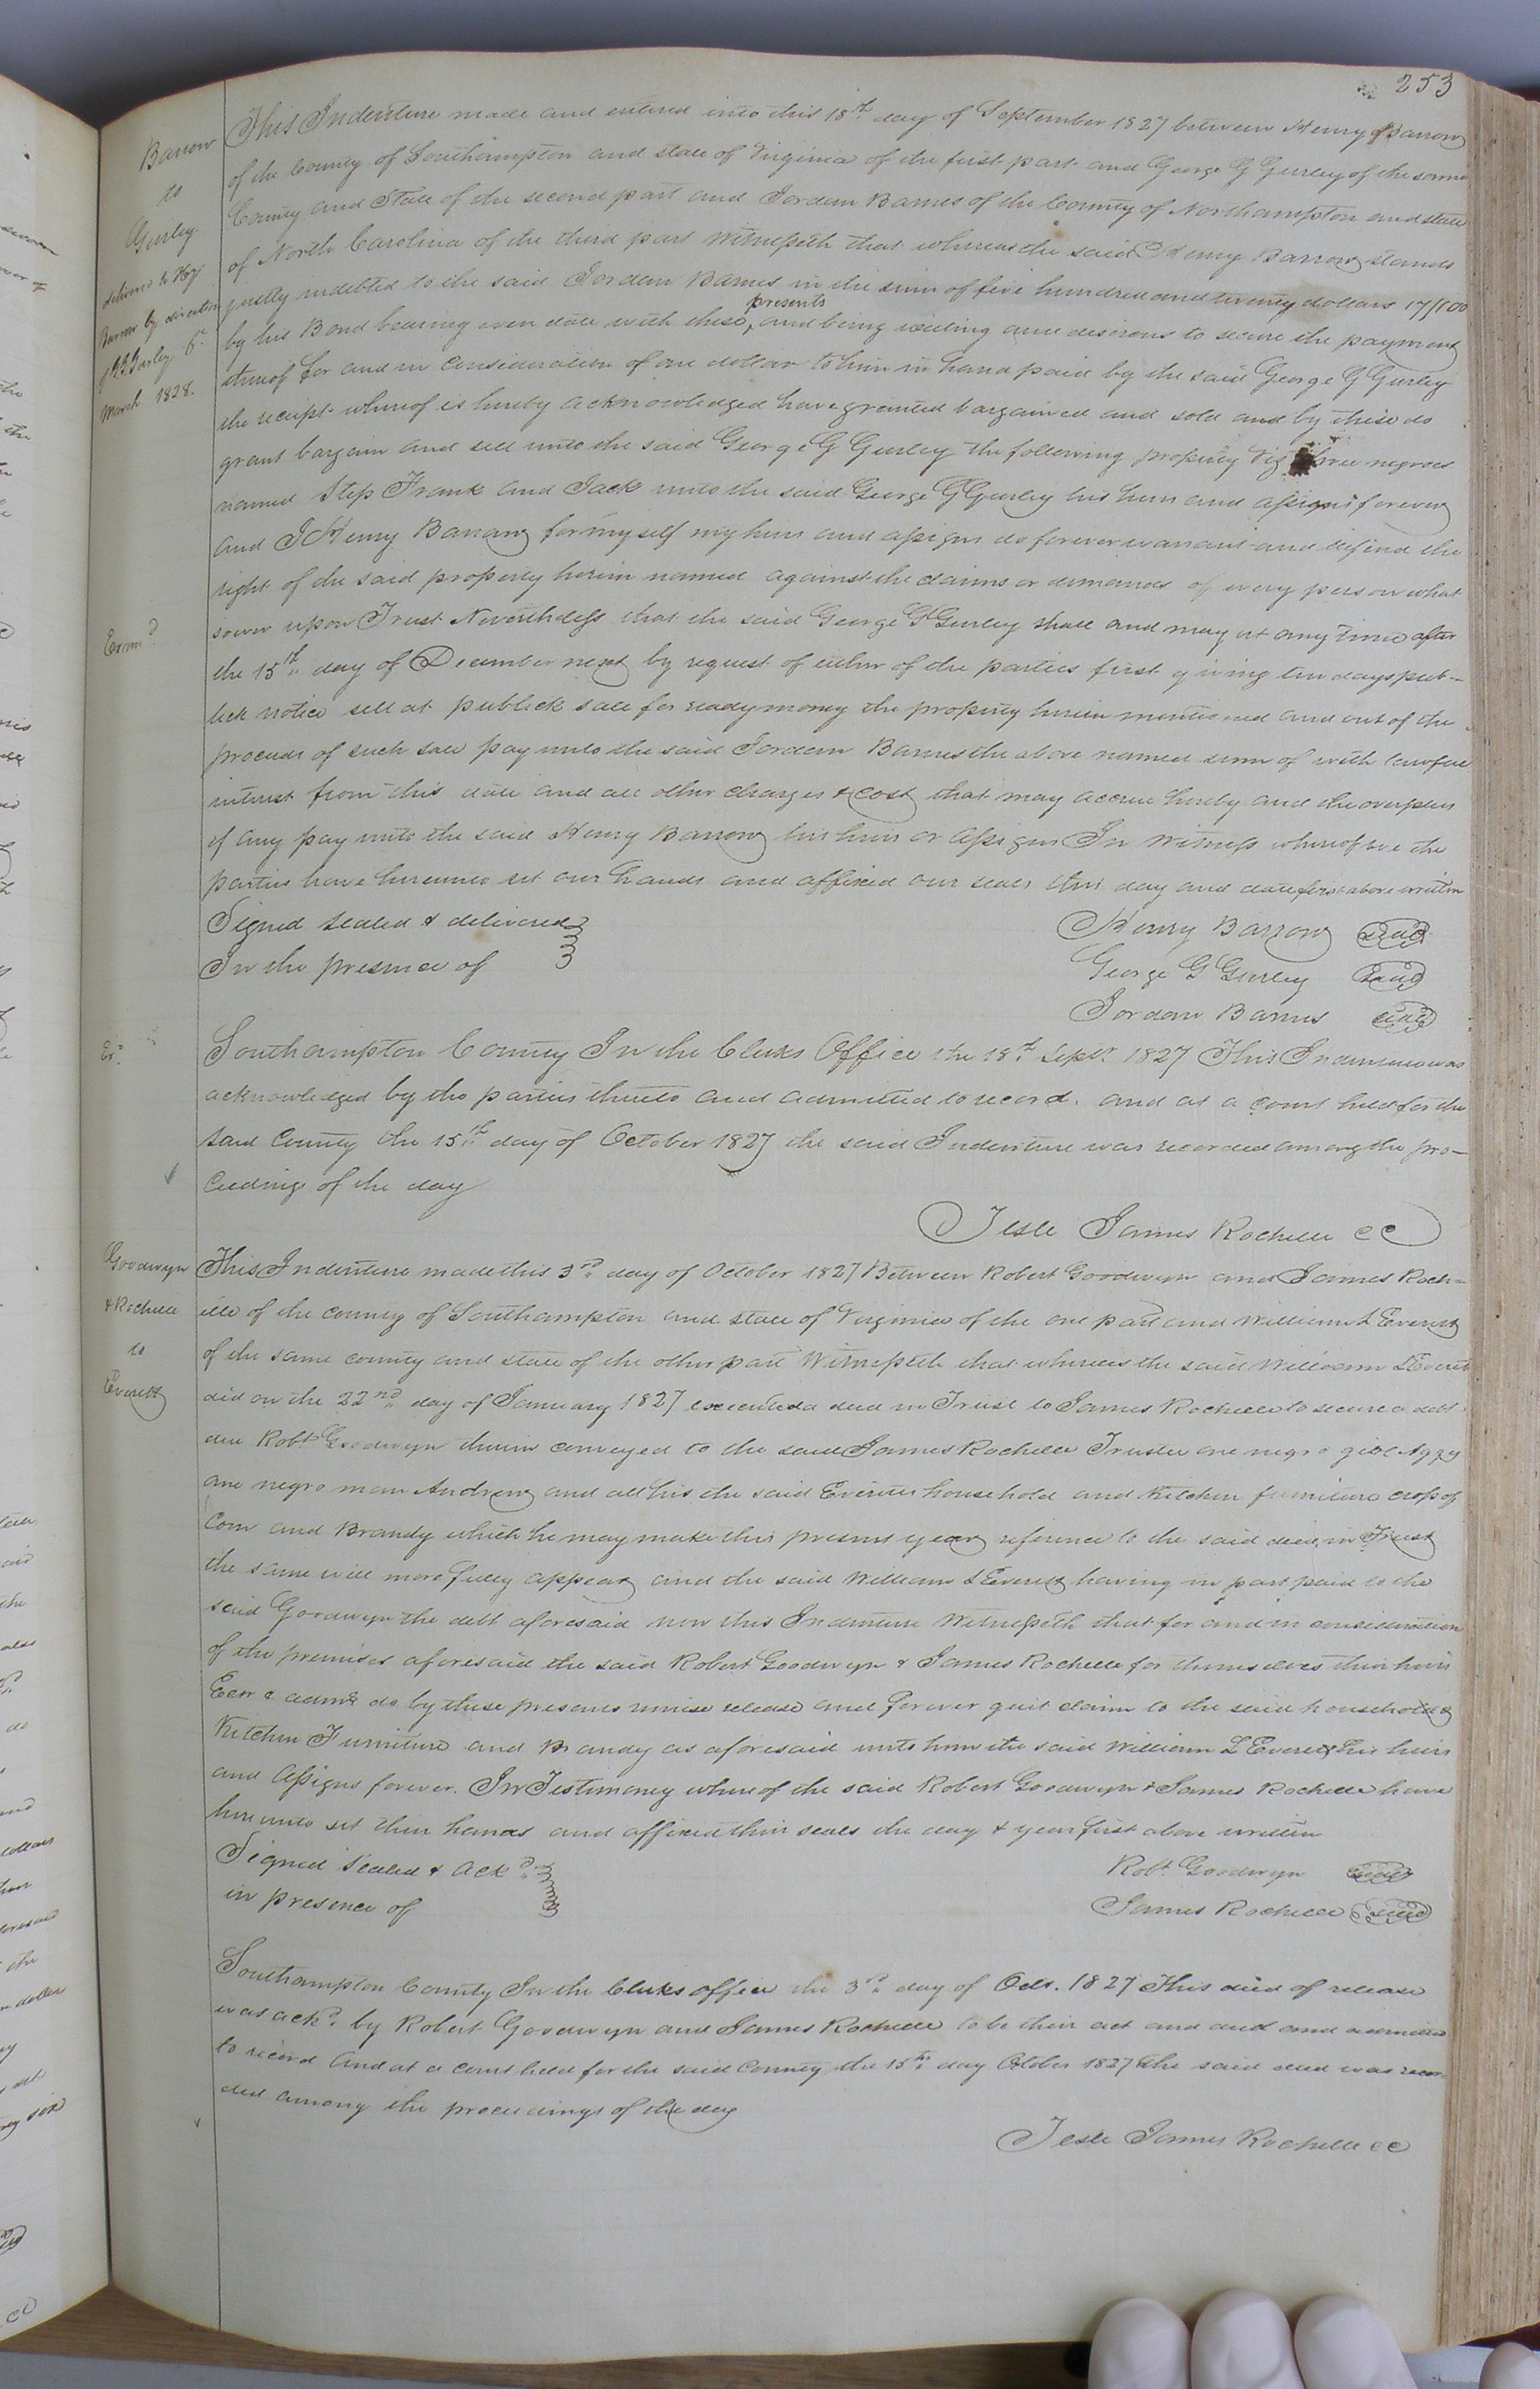 253
Barrow
to
Gurley
delivered to Hy
Barrow by direction
of G. G. Gurley 6th
March 1828.
This Indenture made and entered into this 18th day of September 1827 between Henry Barrow
of the County of Southampton and state of Virginia of the first part and George G Gurley of the same
County and State of the second part and Jordan Barnes of the County of Northampton and state
of North Carolina of the third part Witnesseth that whereas the said Henry Barrow stands
justly indebted to the said Jordan Barnes in the sum of five hundred and twenty dollars 17/100
by his Bond bearing even date with these presents, and being willing and desirous to secure the payment
thereof for and in consideration of one dollar to him in hand paid by the said George G Gurley
the receipt whereof is hereby acknowledged have granted bargained and sold and by these do
grant bargain and sell unto the said George G Gurley the following property Viz three negroes
named Step Frank and Jack unto the said George G Gurley his heirs and assigns forever
and I Henry Barrow for myself my heirs and assigns do forever warrant and defend the
right of the said property herein named against the claims or demands of every person what
soever upon Trust Nevertheless that the said George G Gurley shall and may at any time after
Exam.d
the 15th day of December next by request of either of the parties first giving ten days pub-
lick notice sell at publick sale for ready money the property herein mentioned and out of the
proceeds of such sale pay unto the said Jordan Barnes the above named sum of with lawful
interest from this date and all other charges & cost that may accrue hereby and the overplus
if any pay unto the said Henry Barrow his heirs or assigns In Witness whereof we the
parties have hereunto set our hands and affixed our seals this day and date first above written
Signed sealed & delivered
In the presence of
Henry Barrow seal
George G Gurley seal
Jordan Barnes seal
Ex.d
Southampton County In the Clerks Office the 18th Sept. 1827 This Indenture was
acknowledged by the parties thereto and admitted to record. and at a court held for the
said County the 15th day of October 1827 the said Indenture was recorded among the pro-
ceedings of the day
Teste James Rochelle CC
Goodwyn
& Rochelle
to
Everett
This Indenture made this 3rd day of October 1827 Between Robert Goodwyn and James Roch-
elle of the county of Southampton and state of Virginia of the one part and William L Everett
of the same county and state of the other part Witnesseth that whereas the said William L Everett
did on the 22nd day of January 1827 executed a deed in Trust to James Rochelle to secure a debt
due Robt Goodwyn therein conveyed to the said James Rochelle Trustee one negro girl Aggy
one negro man Andrew and all his the said Everetts household and kitchen furniture crop of
Corn and Brandy which he may make this present year reference to the said deed in Trust
the same will more fully appear and the said William L Everett having in part paid to the
said Goodwyn the debt aforesaid now this Indenture Witnesseth that for and in consideration
of the premises aforesaid the said Robert Goodwyn & James Rochelle for themselves their heirs
Exors & admrs do by these presents remise release and forever quit claim to the said household &
Kitchen Furniture and Brandy as aforesaid unto him the said William L Everett his heirs
and Assigns forever. In Testimoney whereof the said Robert Goodwyn & James Rochelle have
hereunto set their hands and affixed their seals the day & year first above written
Signed Sealed & Ackd.
in presence of
Robt Goodwyn seal
James Rochelle seal
Southampton County In the Clerks office the 3rd day of Octr. 1827 This deed of release
was ackd. by Robert Goodwyn and James Rochelle to be their act and deed and admitted
to record And at a court held for the said County the 15th day October 1827 the said deed was recor
ded among the proceedings of the day
Teste James Rochelle CC